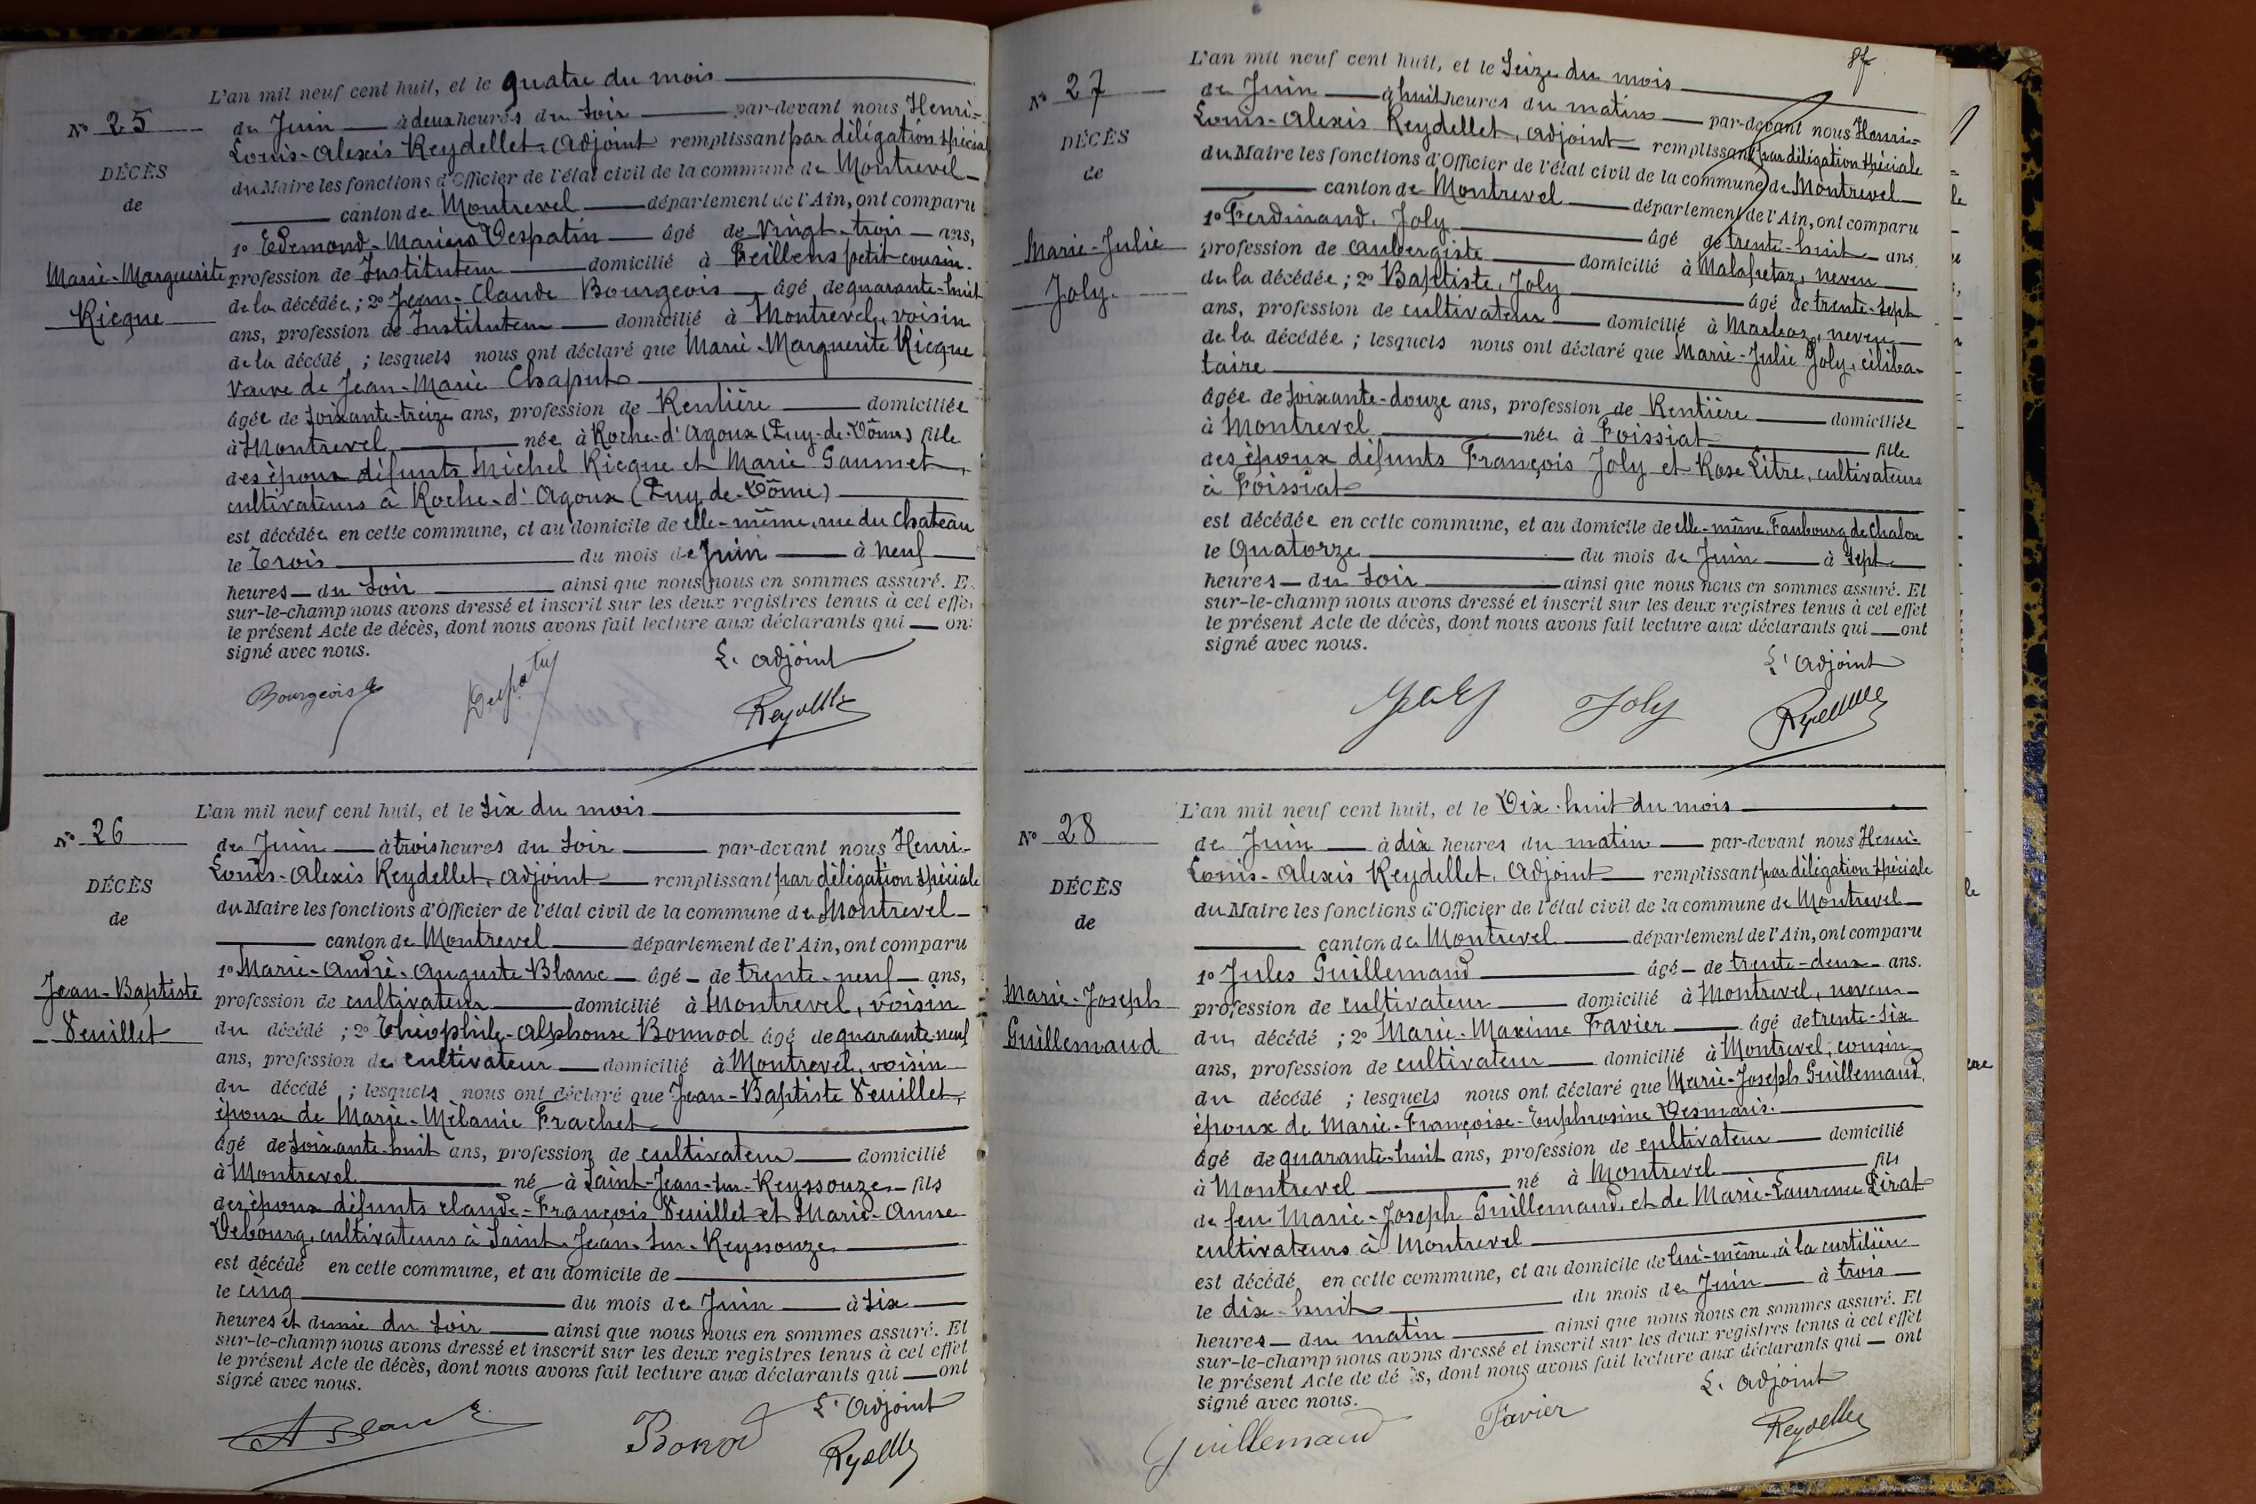 L'an mil neuf cent huit, et le quatre du mois
N° 25
de Juin à deux heures du soir par-devant nous Henri-
Louis-Alexis Reydellet, adjoint remplissant par délégation spécia
DÉCÈS
du Maire les fonctions d'Officier de l'état civil de la commune de Montrevel
de
canton de Montrevel département de l'Ain, ont comparu
1° Edemond-Marius Despatin âgé de vingt-trois ans,
Marie-Marguerite
profession de Instituteur domicilié à Feillens petit cousin
de la décédée ; 2° Jean-Claude Bourgeois âgé de quarante-huit
Ricque
ans, profession de Instituteur domicilié à Montrevel, voisin
de la décédé ; lesquels nous ont déclaré que Marie-Marguerite Ricque
veuve de Jean-Marie Chaput
âgée de soixante-treize ans, profession de Rentière domiciliée
à Montrevel née à Roche-d'Agoux (Puy-de-Dôme) fille
des époux défunts Michel Ricque et Marie Gaumet,
cultivateurs à Roche-d'Agoux (Puy-de-Dôme)
est décédée en cette commune, et au domicile de elle-même, rue du Chateau
le Trois du mois de Juin à neuf
heures du soir ainsi que nous nous en sommes assuré. E
sur-le-champ nous avons dressé et inscrit sur les deux registres tenus à cet effe
le présent Acte de décès, dont nous avons fait lecture aux déclarants qui on
signé avec nous.
L'adjoint
Bourgeois Despatin Reydellet
L'an mil neuf cent huit, et le six du mois
N° 26
de Juin à trois heures du soir par-devant nous Henri-
Louis-Alexis Reydellet, adjoint remplissant par délégation spéciale
DÉCÈS
du Maire les fonctions d'Officier de l'état civil de la commune de Montrevel
de
canton de Montrevel département de l'Ain, ont comparu
1° Marie-André-Auguste Blanc âgé de trente-neuf ans,
Jean-Baptiste
profession de cultivateur domicilié à Montrevel, voisin
Veuillet
du décédé ; 2° Théophile-Alphonse Bonnod âgé de quarante-neuf
ans, profession de cultivateur domicilié à Montrevel, voisin
du décédé ; lesquels nous ont déclaré que Jean-Baptiste Veuillet,
époux de Marie-Mélanie Frachet
âgé de soixante-huit ans, profession de cultivateur domicilié
à Montrevel né à Saint-Jean-sur-Reyssouze fils
des époux défunts Claude-François Veuillet et Marie-Anne
Debourg, cultivateurs à Saint-Jean-sur-Reyssouze
est décédé en cette commune, et au domicile de
le cinq du mois de Juin à six
heures et demie du soir ainsi que nous nous en sommes assuré. Et
sur-le-champ nous avons dressé et inscrit sur les deux registres tenus à cet effet
le présent Acte de décès, dont nous avons fait lecture aux déclarants qui ont
signé avec nous.
L'adjoint
A Blanc Bonod Reydellet
L'an mil neuf cent huit, et le Seize du mois
N° 27
de Juin à huit heures du matin par-devant nous Henri-
Louis-Alexis Reydellet, adjoint remplissant par délégation spéciale
DÉCÈS
du Maire les fonctions d'Officier de l'état civil de la commune de Montrevel
de
canton de Montrevel département de l'Ain, ont comparu
1° Ferdinand Joly âgé de trente-huit ans.
Marie-Julie
profession de aubergiste domicilié à Malafretaz, neveu
Joly.
de la décédée ; 2° Baptiste Joly âgé de trente-sept
ans, profession de cultivateur domicilié à Marboz, neveu
de la décédée ; lesquels nous ont déclaré que Marie-Julie Joly, céliba-
taire
âgée de soixante-douze ans, profession de Rentière domiciliée
à Montrevel née à Foissiat fille
des époux défunts François Joly et Rose Litre, cultivateurs
à Foissiat
est décédée en cette commune, et au domicile de elle-même Faubourg de Chalon
le Quatorze du mois de Juin à sept
heures du soir ainsi que nous nous en sommes assuré. Et
sur-le-champ nous avons dressé et inscrit sur les deux registres tenus à cet effet
le présent Acte de décès, dont nous avons fait lecture aux déclarants qui ont
signé avec nous.
L'adjoint
Joly Joly Reydellet
L'an mil neuf cent huit, et le Dix-huit du mois
N° 28
de Juin à dix heures du matin par-devant nous Henri-
Louis-Alexis Reydellet, Adjoint remplissant par délégation spéciale
DÉCÈS
du Maire les fonctions d'Officier de l'état civil de la commune de Montrevel
de
canton de Montrevel département de l'Ain, ont comparu
1° Jules Guillemaud âgé de trente-deux ans.
Marie-Joseph
profession de cultivateur domicilié à Montrevel, neveu
Guillemaud
du décédé ; 2° Marie-Maxime Favier âgé de trente-six
ans, profession de cultivateur domicilié à Montrevel, cousin
du décédé ; lesquels nous ont déclaré que Marie-Joseph Guillemaud,
époux de Marie-Françoise-Euphrosine Desmaris.
âgé de quarante-huit ans, profession de cultivateur domicilié
à Montrevel né à Montrevel fils
de feu Marie-Joseph Guillemaud, et de Marie-Laurence Pirat
cultivateurs à Montrevel
est décédé en cette commune, et au domicile de lui-même, à la curtilière
le dix-huit du mois de Juin à trois
heures du matin ainsi que nous nous en sommes assuré. Et
sur-le-champ nous avons dressé et inscrit sur les deux registres tenus à cet effet
le présent Acte de dé ès, dont nous avons fait lecture aux déclarants qui ont
signé avec nous.
L'adjoint
Guillemaud Favier Reydellet